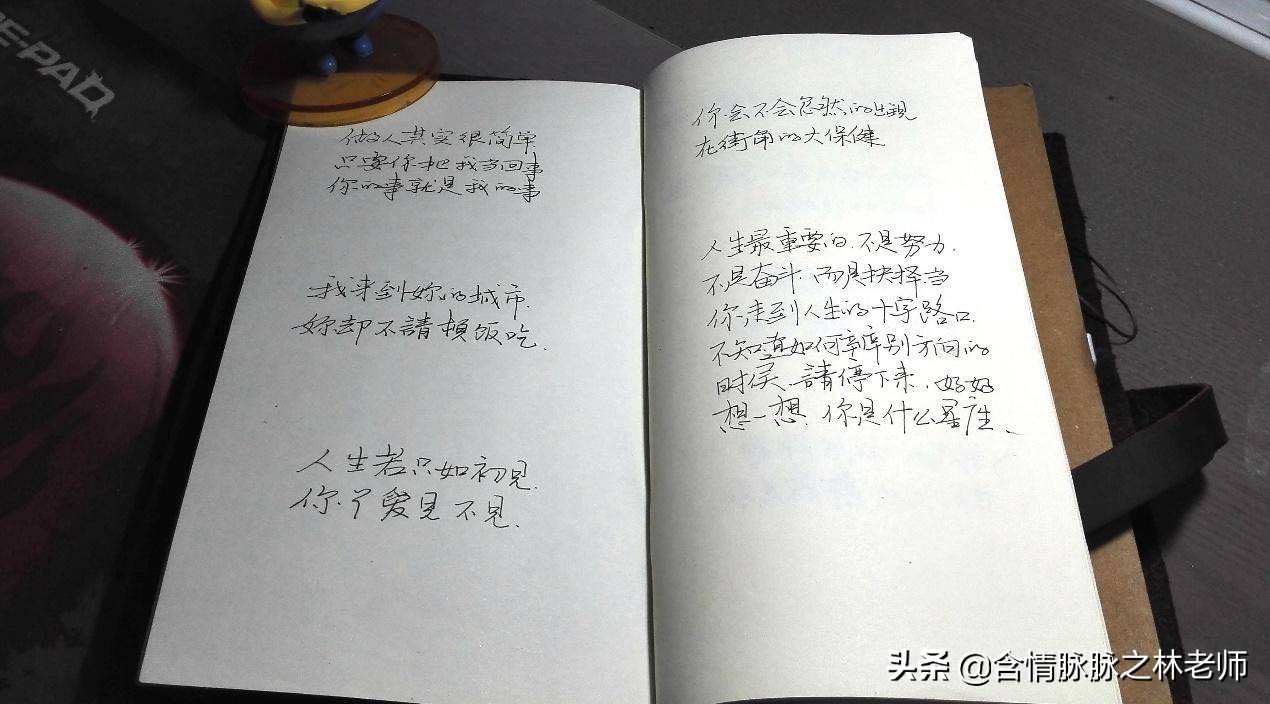 E-PAD
做人其实很简单
只要你把我当回事
你的事就是我的事
我来到妳的城市.
妳却不請頓饭吃.
人生若只如初见.
你丫爱見不見.
你会不会忽然的出现
在街角的大保健
人生最重要的.不是努力.
不是奋斗.而是抉择.当
你来到人生的十字路口.
不知道如何辨别方向的
时侯.請停下来.好好
想一想.你是什么星座、
头条 @含情脉脉之林老师